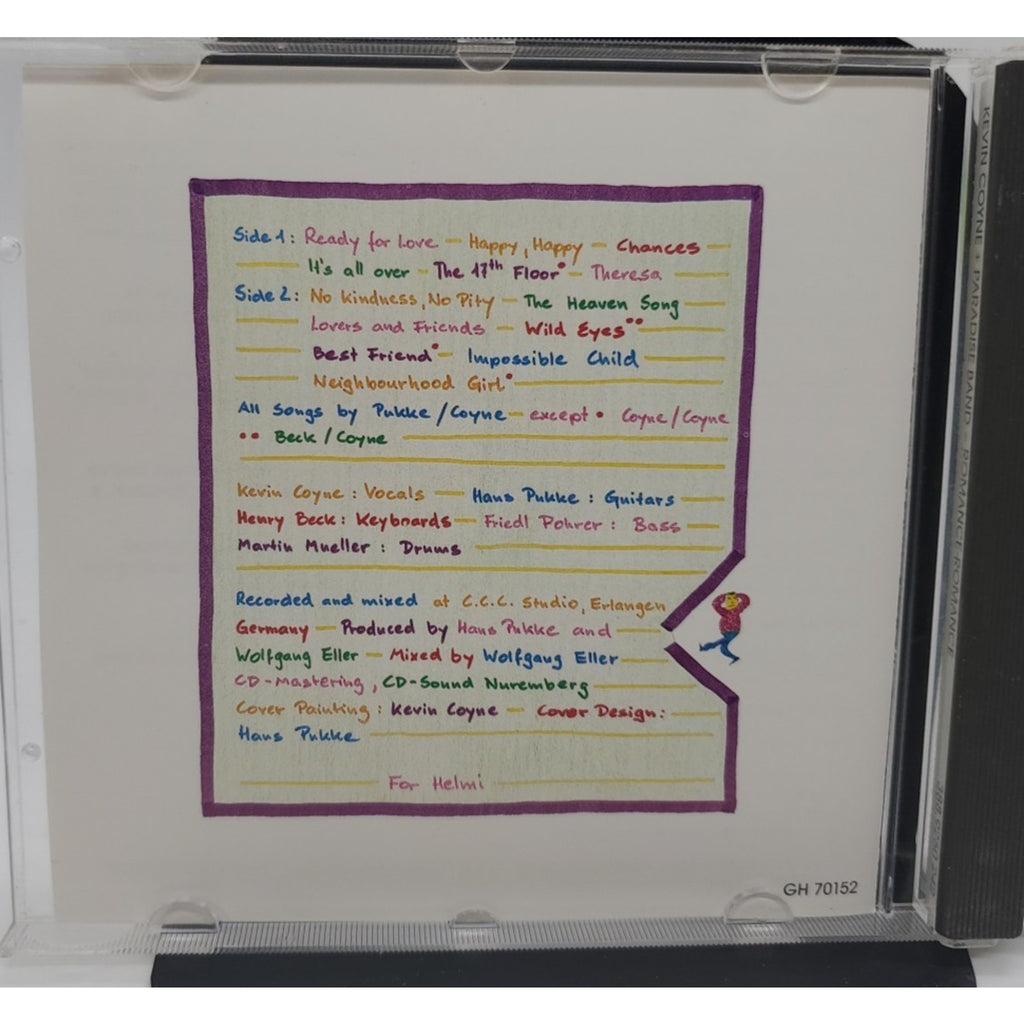 Side 1: Ready for Love — Happy, Happy — Chances —
It's all over — The 17th Floor• — Theresa
Side 2: No Kindness, No Pity — The Heaven Song
Lovers and Friends — Wild Eyes••
Best Friend• — Impossible Child
Neighbourhood Girl•
All Songs by Pukke/Coyne — except • Coyne/Coyne
•• Beck/Coyne
Kevin Coyne: Vocals — Hans Pukke: Guitars
Henry Beck: Keyboards — Friedl Pohrer: Bass
Martin Mueller: Drums
Recorded and mixed at C.C.C. Studio, Erlangen
Germany — Produced by Hans Pukke and
Wolfgang Eller — Mixed by Wolfgang Eller
CD-Mastering, CD-Sound Nuremberg
Cover Painting: Kevin Coyne — Cover Design:
Hans Pukke
For Helmi
GH 70152
KEVIN COYNE + PARADISE BAND - ROMANCE ROMANCE